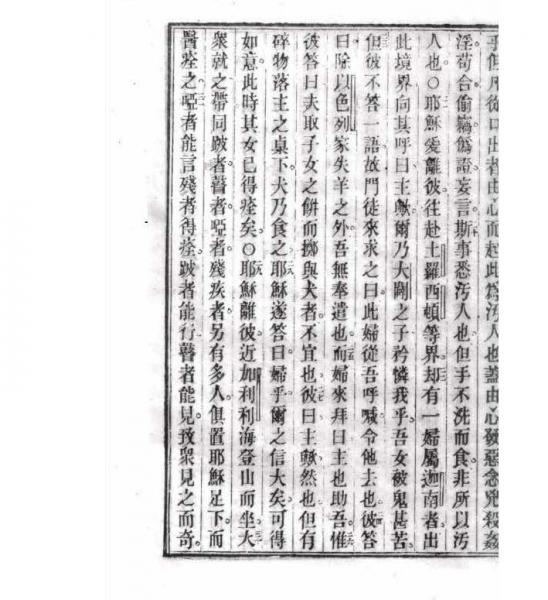 乎但凡從口出者由心而起此為汚人也蓋由心發惡念兇殺姦
淫苟合偷竊偽證妄言斯事悉汚人也但手不洗而食非所以汚
人也○耶穌爰離彼往赴土羅西頓等界却有一婦屬迦南者出
此境界向其呼曰主歟爾乃大闢之子矜憐我乎吾女被鬼甚苦
但彼不答一語故門徒來求之曰此婦從吾呼喊令他去也彼答
曰除以色列家失羊之外吾無奉遣也而婦來拜曰主也助吾惟
彼答曰夫取子女之餅而擲與犬者不宜也彼曰主歟然也但有
碎物落主之桌下犬乃食之耶穌遂答曰婦乎爾之信大矣可得
如意此時其女已得痊矣○耶穌離彼近加利利海登山而坐大
衆就之帶同跛者瞽者啞者殘疾者另有多人俱置耶穌足下而
醫痊之啞者能言殘者得痊跛者能行瞽者能見致衆見之而奇